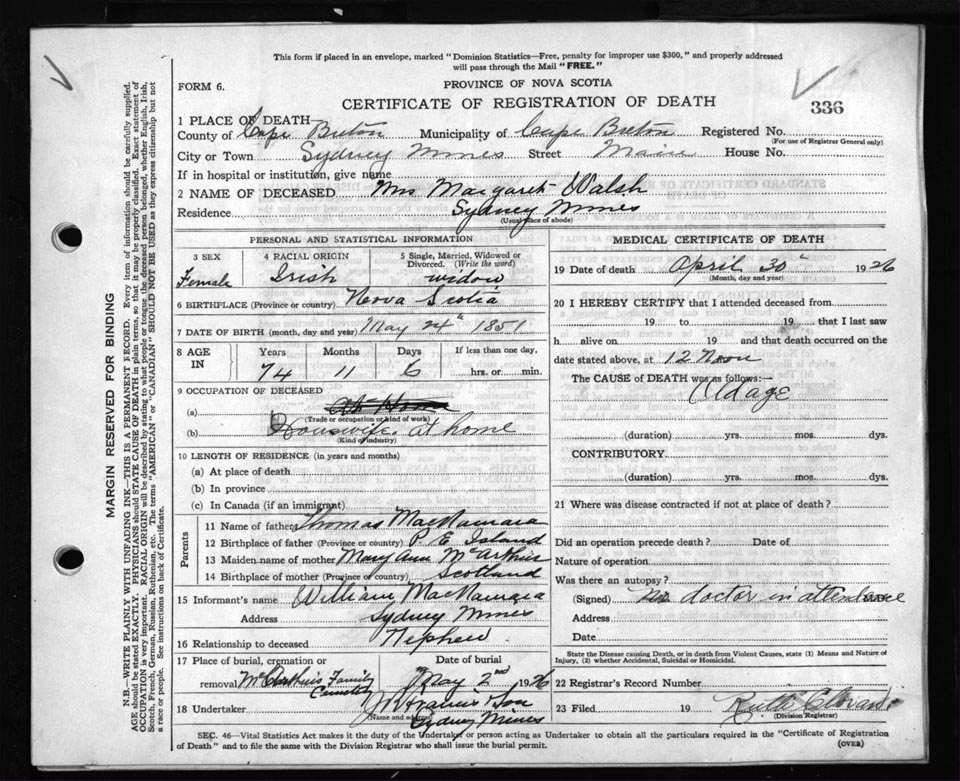 This form if placed in an envelope, marked "Dominion Statistics—Free, penalty for improper use $300," and properly addressed
will pass through the Mail "FREE."
FORM 6.
PROVINCE OF NOVA SCOTIA
CERTIFICATE OF REGISTRATION OF DEATH
336
1 PLACE OF DEATH
County of Cape Breton Municipality of Cape Breton Registered No.
(For use of Registrar General only)
City or Town Sydney Mines Street Main House No.
If in hospital or institution, give name
2 NAME OF DECEASED Mrs Margaret Walsh
Residence Sydney Mines
(Usual place of abode)
PERSONAL AND STATISTICAL INFORMATION
3 SEX
Female
4 RACIAL ORIGIN
Irish
5 Single, Married, Widowed or
Divorced. (Write the word)
widow
6 BIRTHPLACE (Province or country) Nova Scotia
7 DATE OF BIRTH (month, day and year) May 24th 1851
8 AGE
IN
Years Months Days If less than one day,
74 11 6 hrs. or min.
9 OCCUPATION OF DECEASED
(a) At Home
(Trade or occupation or kind of work)
(b) Housewife at home
(Kind of industry)
10 LENGTH OF RESIDENCE (in years and months)
(a) At place of death
(b) In province
(c) In Canada (if an immigrant)
Parents
11 Name of father Thomas MacNamara
12 Birthplace of father (Province or country) P. E Island
13 Maiden name of mother Mary Ann McArthur
14 Birthplace of mother (Province or country) Scotland
15 Informant's name William MacNamara
Address Sydney Mines
16 Relationship to deceased Nephew
17 Place of burial, cremation or
removal Family
Cemetery
Date of burial
May 2nd 1926
18 Undertaker Son
(Name and address) Sydney Mines
MEDICAL CERTIFICATE OF DEATH
19 Date of death April 30th 1926
(Month, day and year)
20 I HEREBY CERTIFY that I attended deceased from
19 to 19 that I last saw
h alive on 19 and that death occurred on the
date stated above, at 12 Noon
The CAUSE of DEATH was as follows:—
Old age
(duration) yrs. mos. dys.
CONTRIBUTORY
(duration) yrs. mos. dys.
21 Where was disease contracted if not at place of death?
Did an operation precede death? Date of
Nature of operation
Was there an autopsy?
(Signed) No doctor in attendance
Address
Date
State the Disease causing Death, or in death from Violent Causes, state (1) Means and Nature of
Injury, (2) whether Accidental, Suicidal or Homicidal.
22 Registrar's Record Number
23 Filed 19 Ruth
(Division Registrar)
SEC. 46—Vital Statistics Act makes it the duty of the Undertaker or person acting as Undertaker to obtain all the particulars required in the "Certificate of Registration
of Death" and to file the same with the Division Registrar who shall issue the burial permit.
(OVER)
MARGIN RESERVED FOR BINDING
N.B.—WRITE PLAINLY WITH UNFADING INK—THIS IS A PERMANENT RECORD. Every item of information should be carefully supplied.
AGE should be stated EXACTLY. PHYSICIANS should STATE CAUSE OF DEATH in plain terms, so that it may be properly classified. Exact statement of
OCCUPATION is very important. RACIAL ORIGIN will be described by stating to what people or tongue the deceased person belonged, whether English, Irish,
Scotch, French, German, Russian, Ruthenian, etc. The terms "AMERICAN" or "CANADIAN" SHOULD NOT BE USED as they express citizenship but not
a race or people. See instructions on back of Certificate.